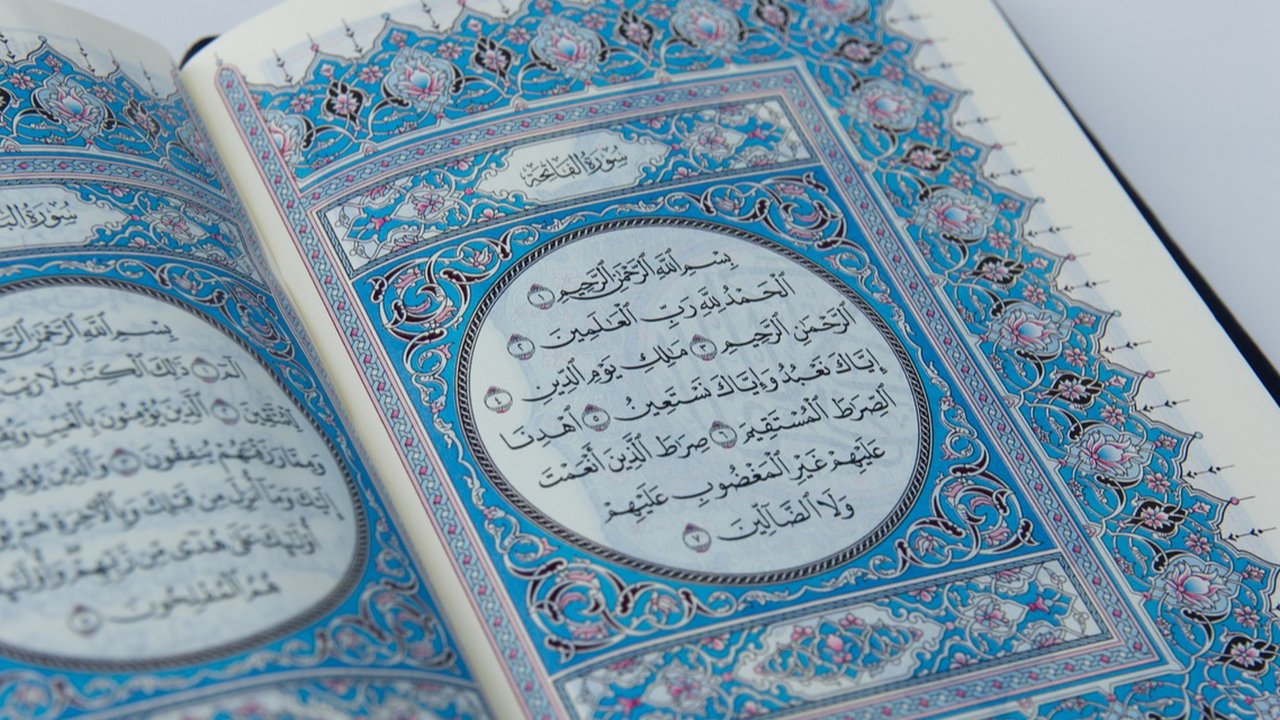 سُورَةُ الفَاتِحَة
بِسْمِ ٱللَّهِ ٱلرَّحْمَٰنِ ٱلرَّحِيمِ ١
ٱلْحَمْدُ لِلَّهِ رَبِّ ٱلْعَٰلَمِينَ ٢
ٱلرَّحْمَٰنِ ٱلرَّحِيمِ ٣ مَٰلِكِ يَوْمِ ٱلدِّينِ ٤
إِيَّاكَ نَعْبُدُ وَإِيَّاكَ نَسْتَعِينُ ٥ ٱهْدِنَا
ٱلصِّرَٰطَ ٱلْمُسْتَقِيمَ ٦ صِرَٰطَ ٱلَّذِينَ أَنْعَمْتَ
عَلَيْهِمْ غَيْرِ ٱلْمَغْضُوبِ عَلَيْهِمْ
وَلَا ٱلضَّآلِّينَ ٧
سُورَةُ
بِسْمِ ٱللَّهِ ٱلرَّحْمَٰنِ
الٓمٓ ١ ذَٰلِكَ ٱلْكِتَٰبُ لَا رَيْبَ
ٱلَّذِينَ يُؤْمِنُونَ بِٱلْغَيْبِ
وَمِمَّا رَزَقْنَٰهُمْ يُنفِقُونَ ٣ وَٱلَّذِينَ يُؤْمِنُونَ
إِلَيْكَ وَمَآ أُنزِلَ مِن قَبْلِكَ وَبِٱلْءَاخِرَةِ هُمْ
أُو۟لَٰٓئِكَ عَلَىٰ هُدًى مِّن رَّبِّهِمْ
هُمُ ٱلْمُفْلِحُونَ